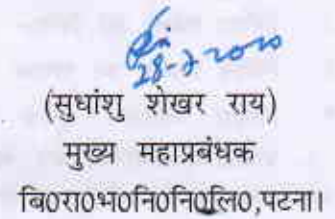 28-7-2020
(सुधांशु शेखर राय)
मुख्य महाप्रबंधक
बि0रा0भ0नि0नि0लि0,पटना।